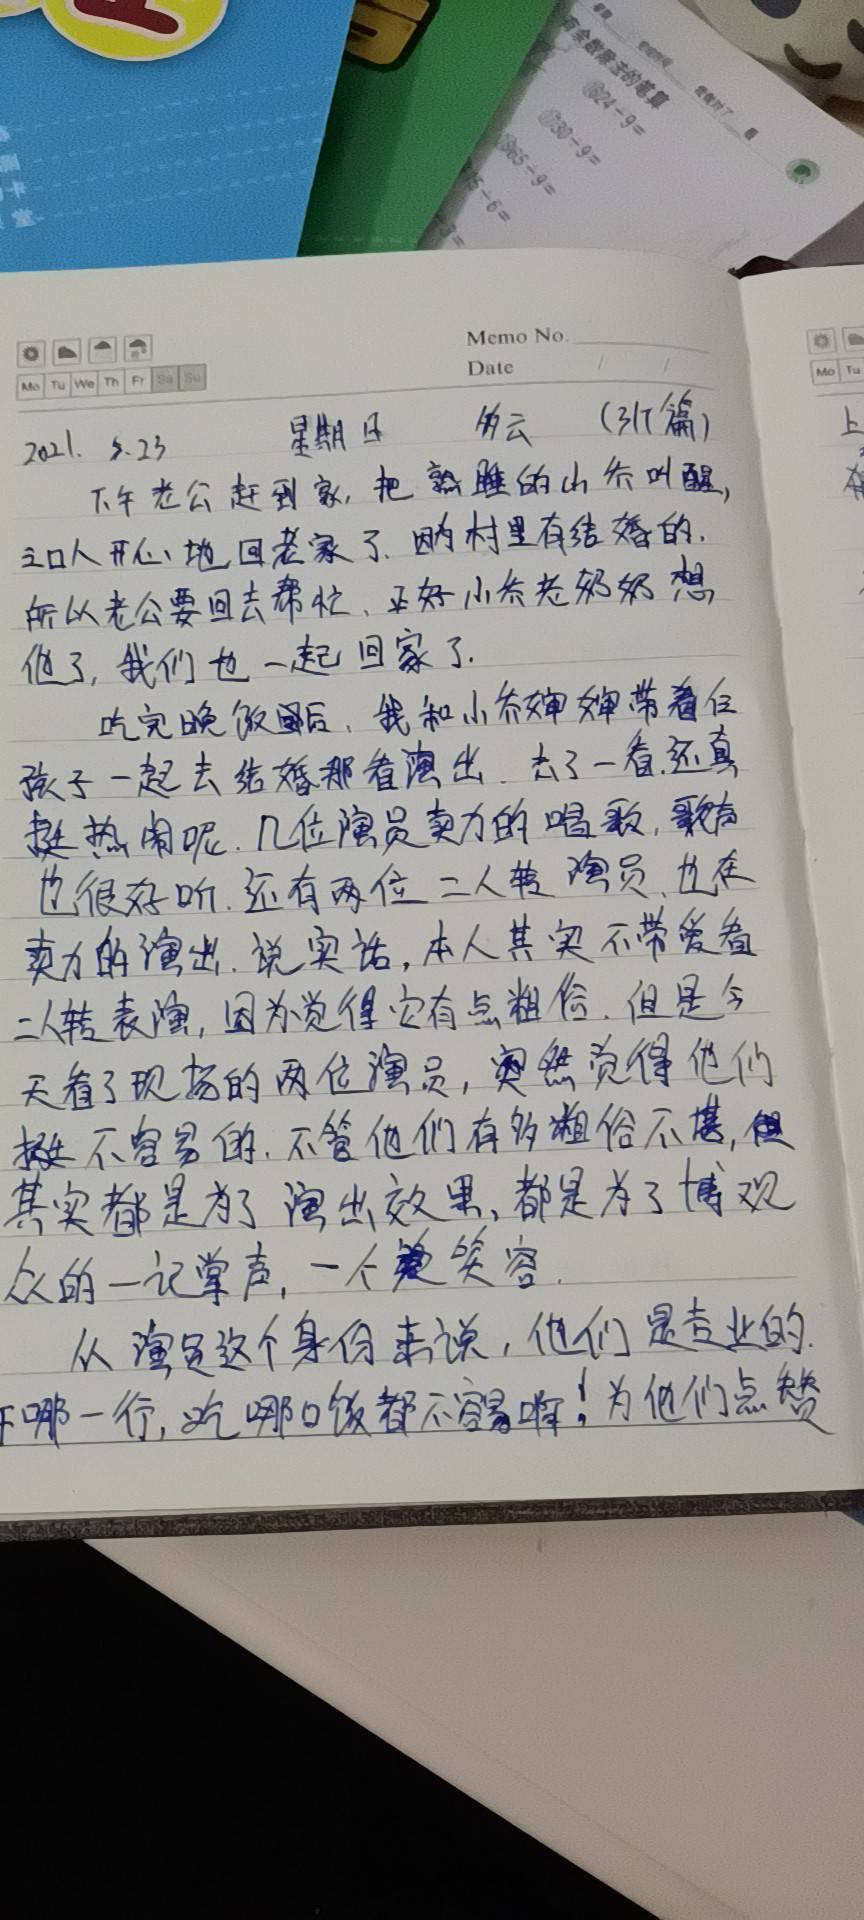 有余数除法的笔算
624÷9=
730÷9=
965÷9=
15÷6=
÷3=
Memo No.
Date / /
Mo Tu We Th Fr Sa Su
Mo Tu
2021. 5.23 星期日 多云 (317篇)
下午老公赶到家,把熟睡的小乔叫醒,
三口人开心地回老家了.因为村里有结婚的.
所以老公要回去帮忙、正好小乔老奶奶想
他了,我们也一起回家了.
吃完晚饭后、我和小乔婶婶带着仨
孩子一起去结婚那看演出.去了一看.还真
挺热闹呢.几位演员卖力的唱歌,歌声
也很好听.还有两位二人转演员、也在
卖力的演出.说实话,本人其实不带爱看
二人转表演,因为觉得它有点粗俗.但是今
天看了现场的两位演员,突然觉得他们
挺不容易的.不管他们有多粗俗不堪,但
其实都是为了演出效果、都是为了博观
众的一记掌声,一个笑容.
从演员这个身份来说,他们是专业的.
干哪一行,吃哪口饭都不容易啊!为他们点赞
上